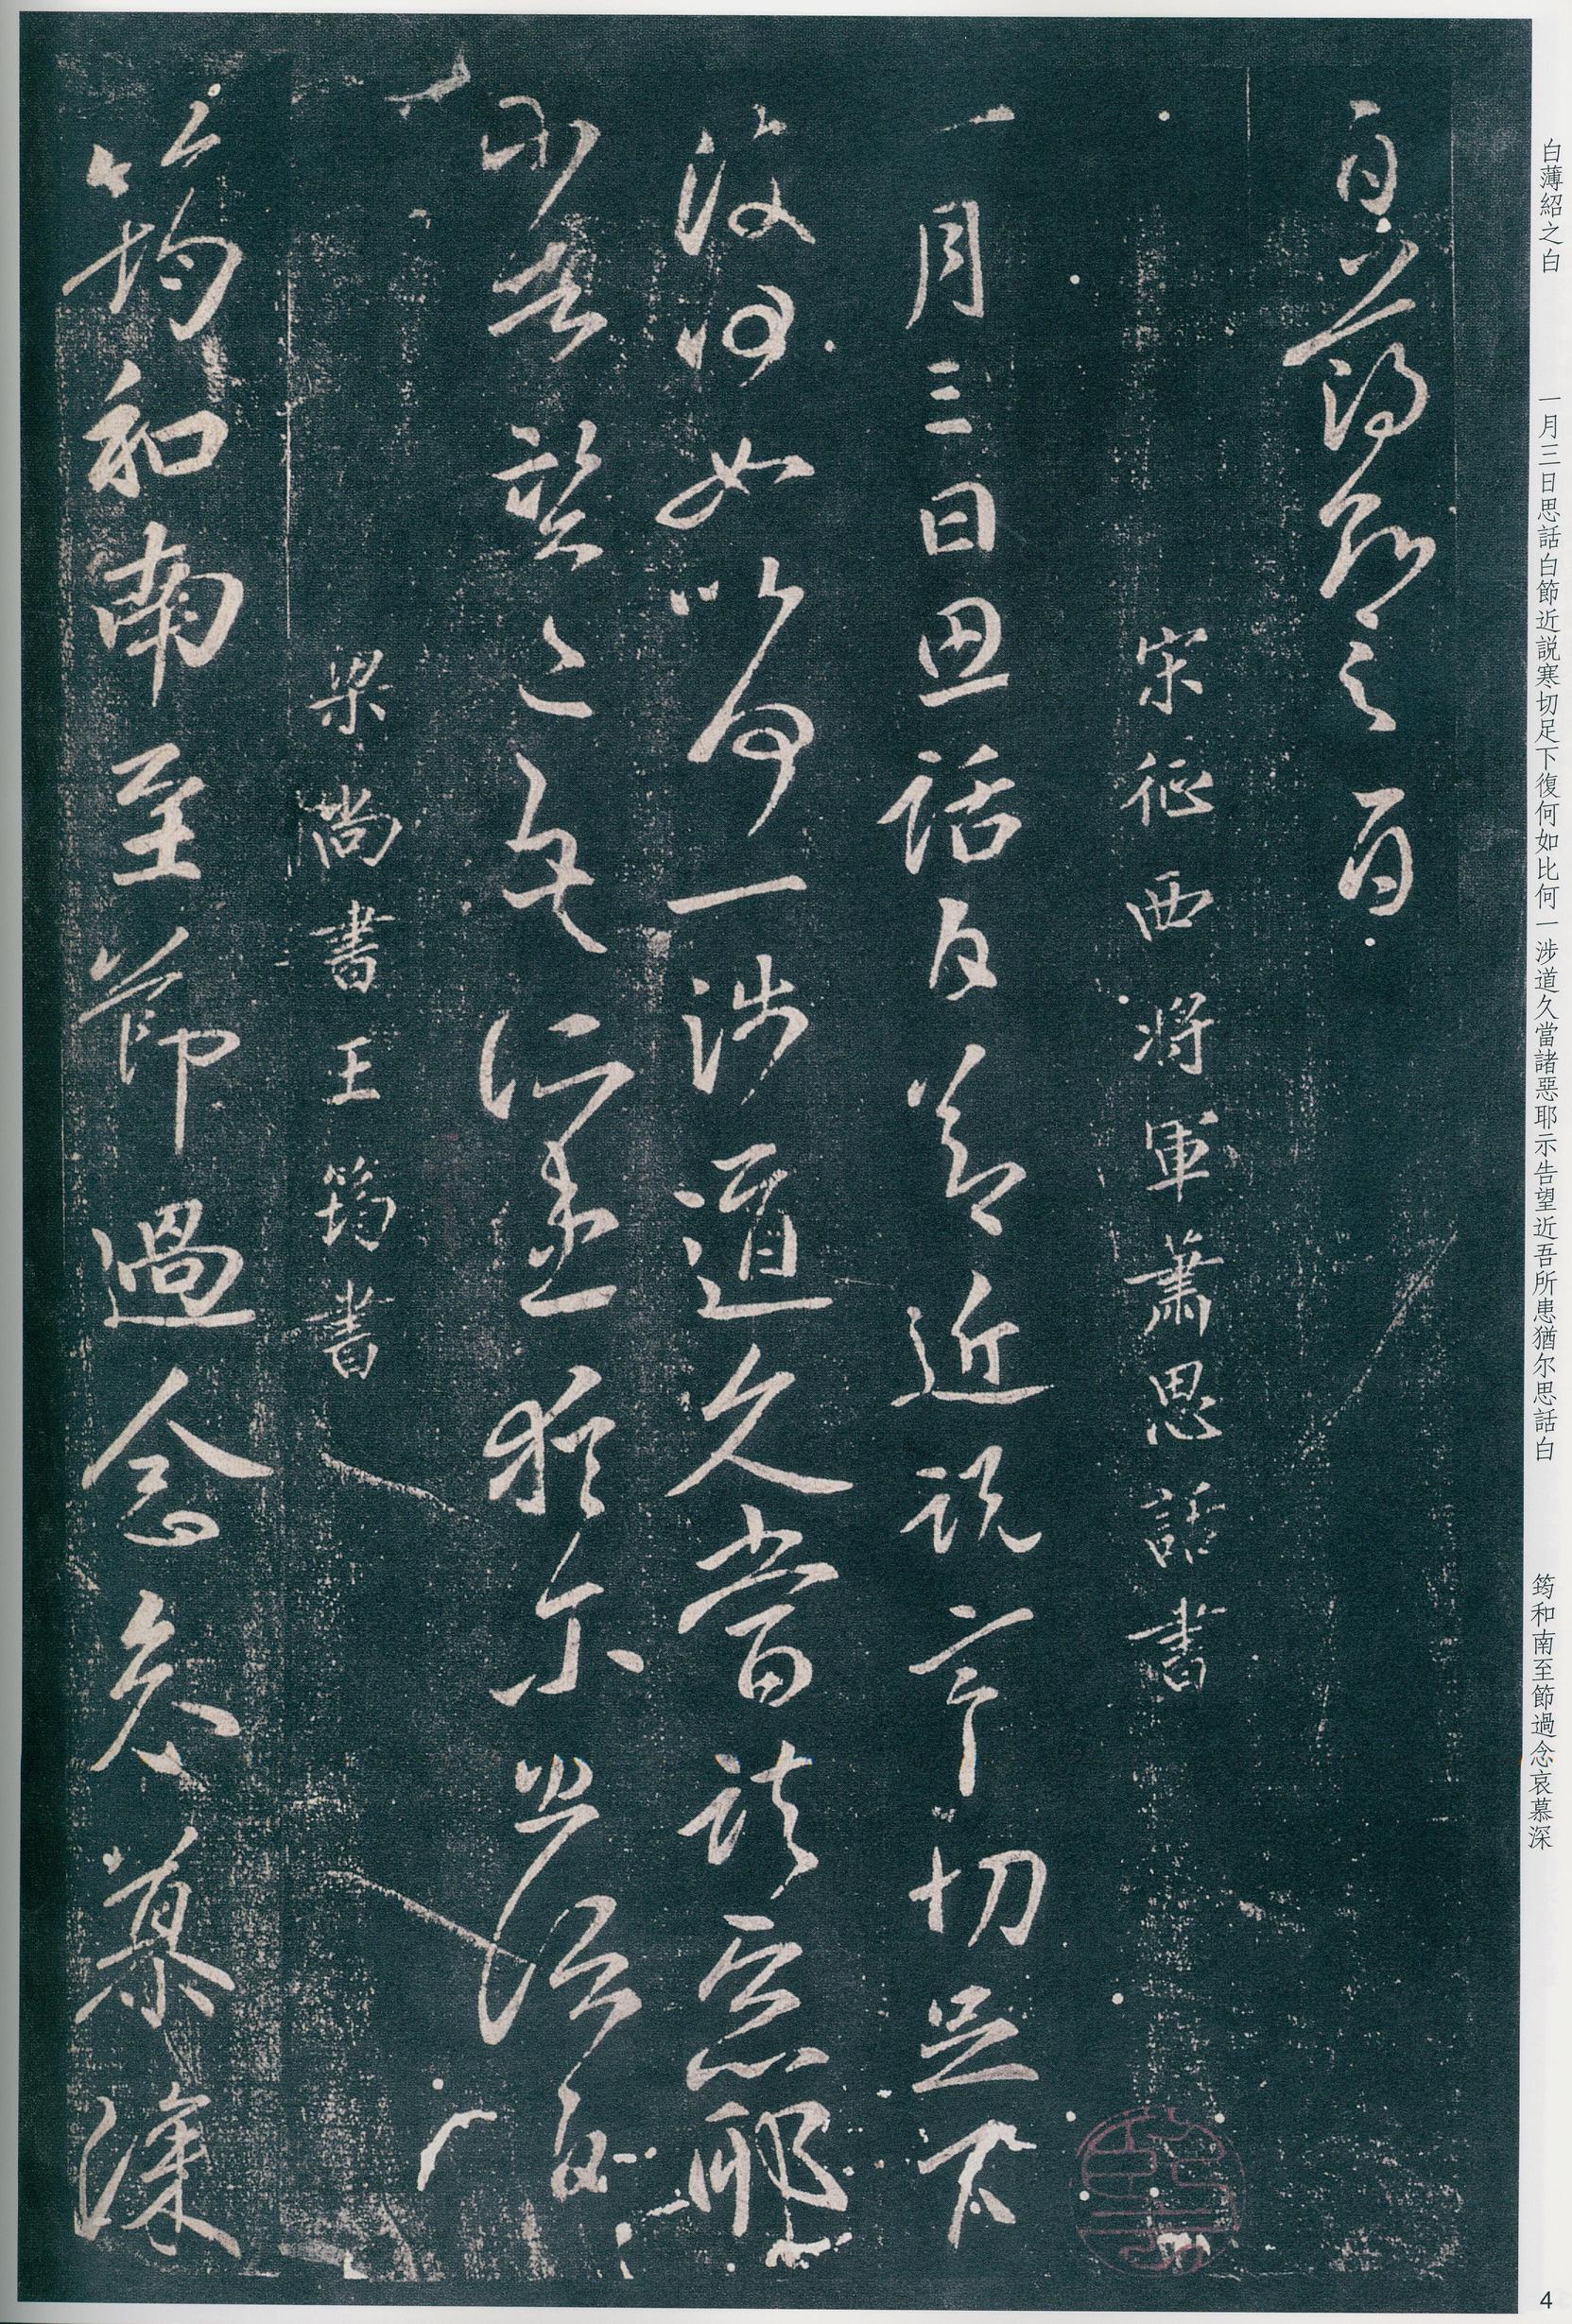 白薄紹之白
一月三日思話白節近説寒切足下復何如比何一涉道久當諸惡耶示告望近吾所患猶尔思話白
筠和南至節過念哀慕深
白薄紹之白
宋征西将軍蕭思話書
一月三日思話白節近説寒切足下
復何如比何一涉道久當諸惡耶
示告望近吾所患猶尔思話白
梁尚書王筠書
筠和南至節過念哀慕深
4